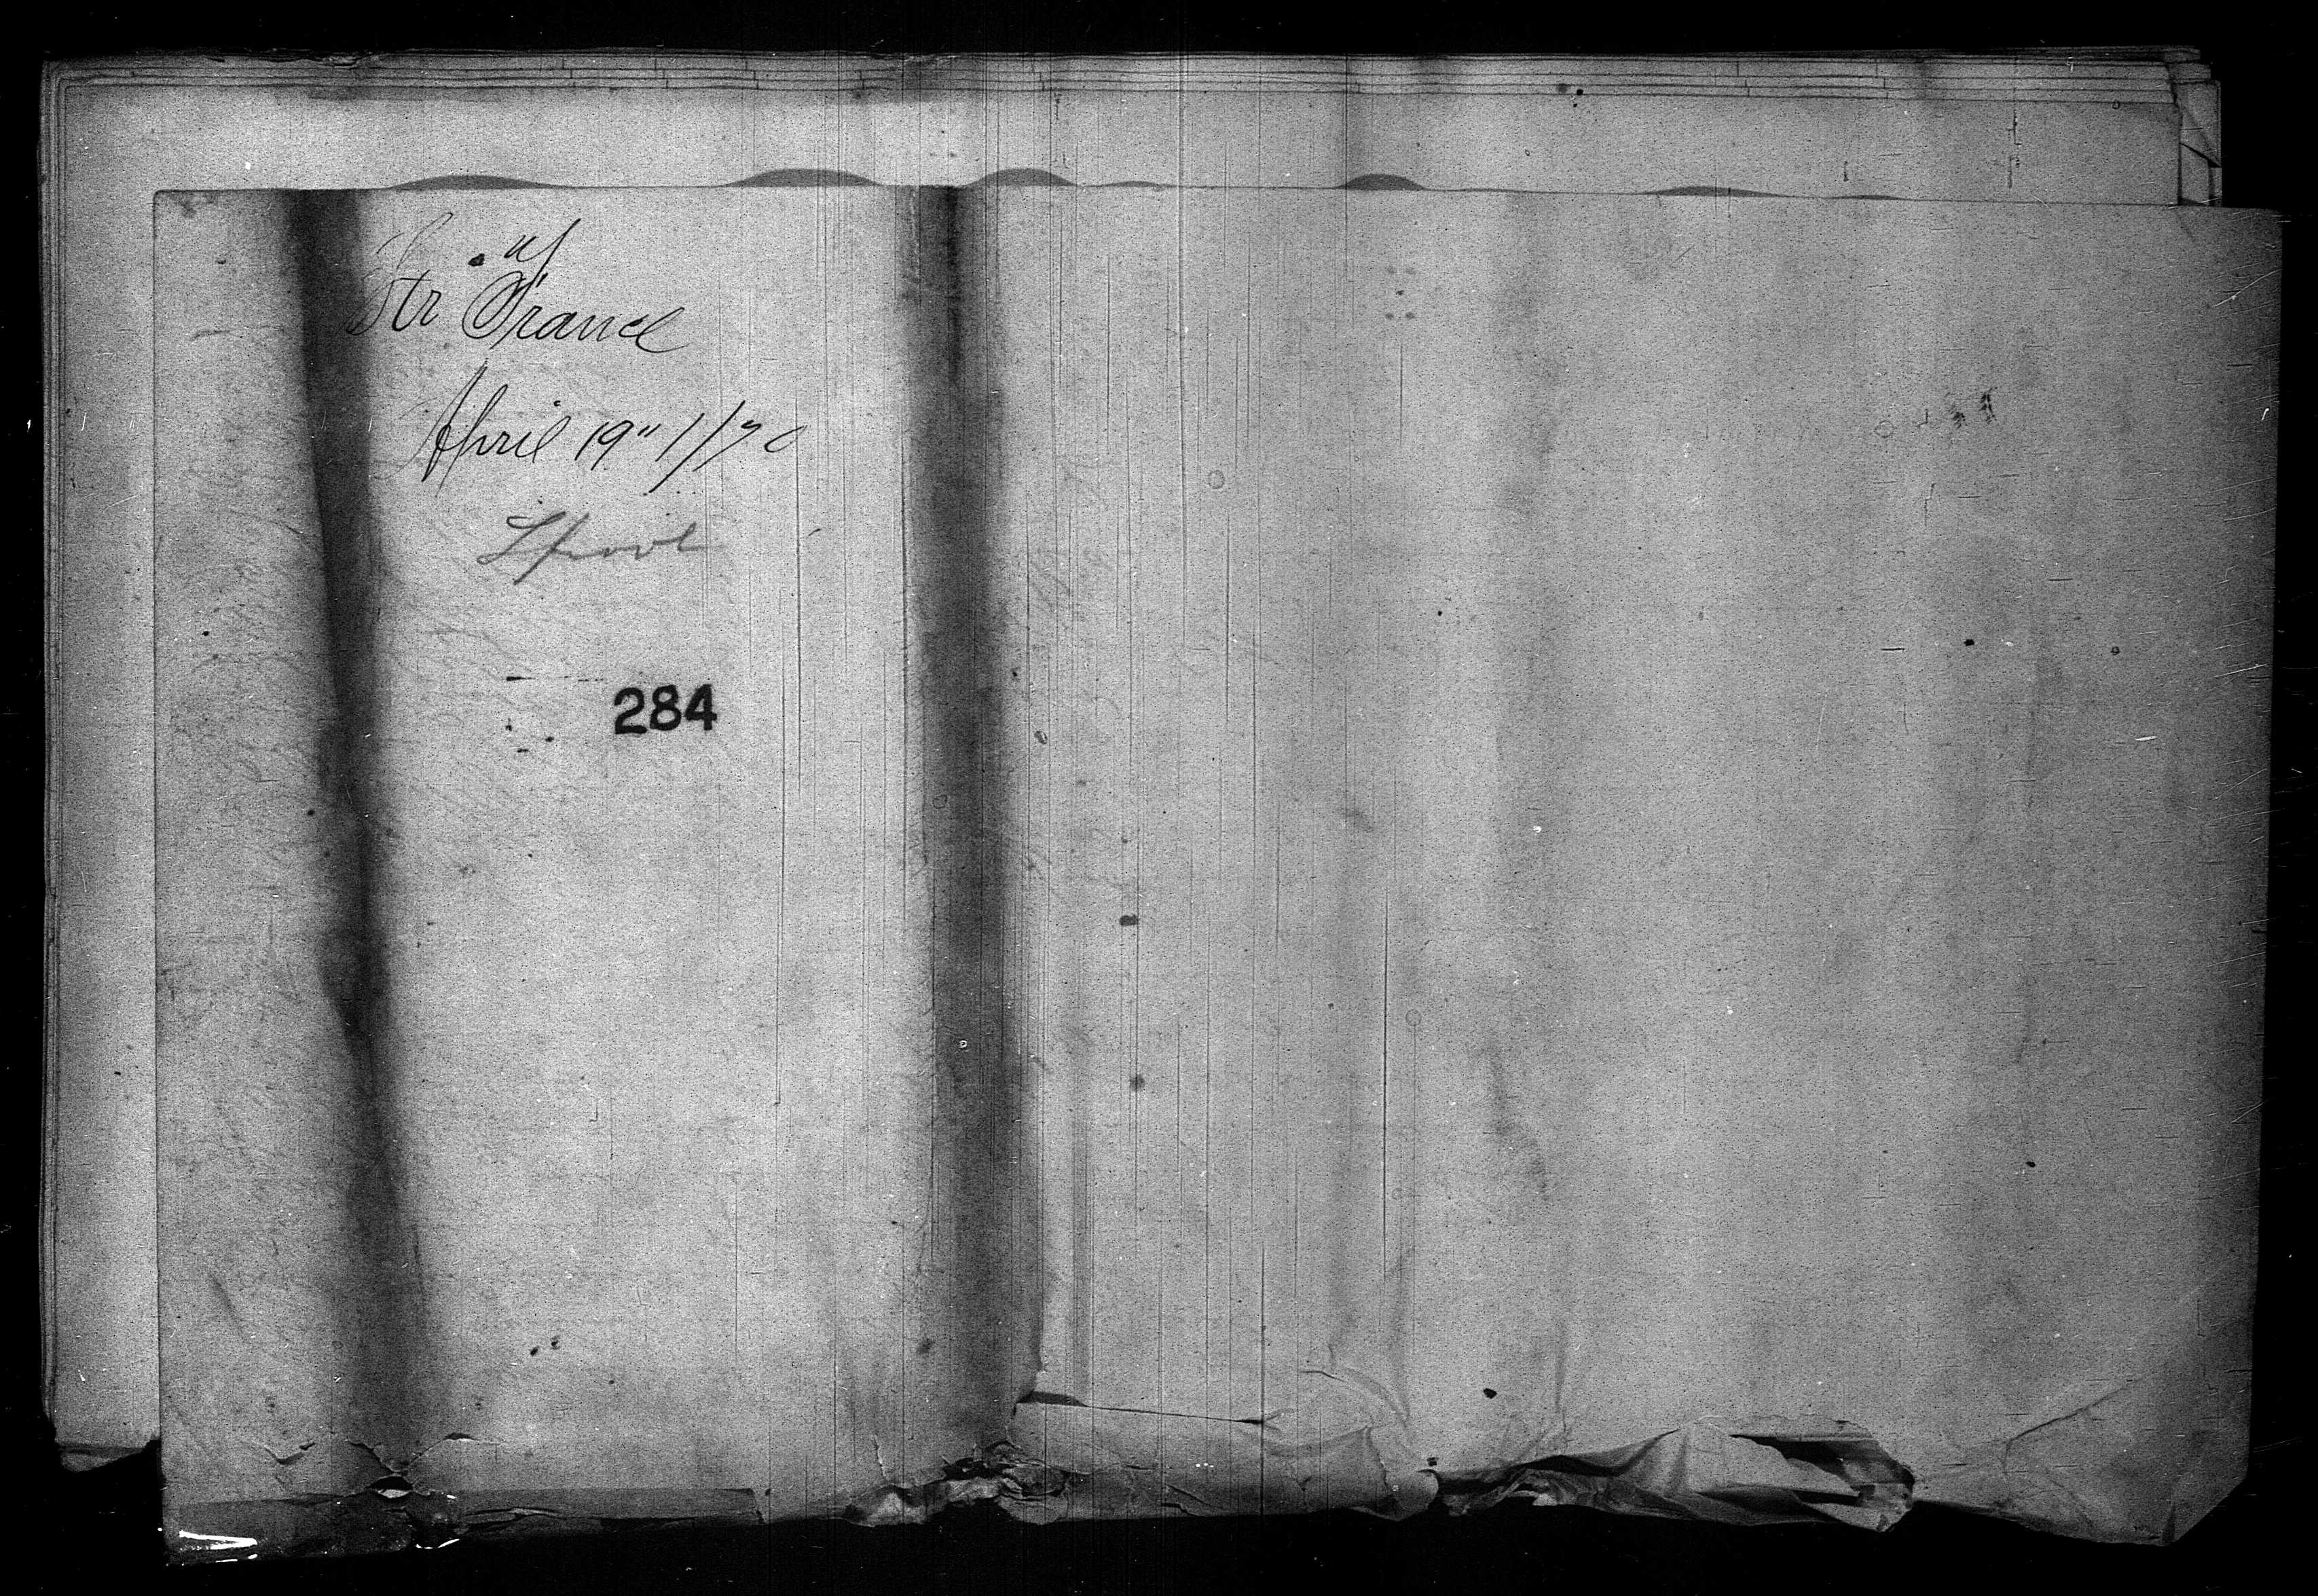 Str France
April 19" 1/70
Lpool
284